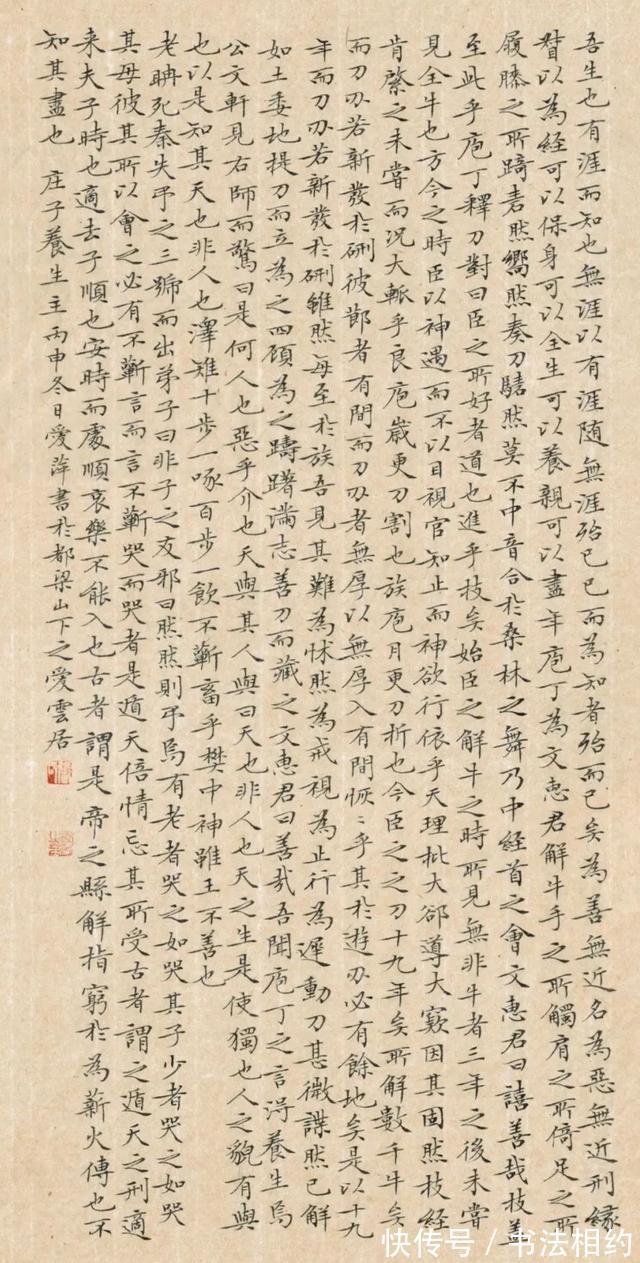 吾生也有涯而知也無涯以有涯随無涯殆已已而為知者殆而已矣為善無近名為惡無近刑緣
督以為經可以保身可以全生可以養親可以盡年庖丁為文惠君解牛手之所觸肩之所倚足之所
履膝之所踦砉然嚮然奏刀騞然莫不中音合於桑林之舞乃中經首之會文惠君曰譆善哉技盖
至此乎庖丁釋刀對曰臣之所好者道也進乎技矣始臣之解牛之時所見無非牛者三年之後未嘗
見全牛也方今之時臣以神遇而不以目視官知止而神欲行依乎天理批大郤導大窾因其固然技經
肯綮之未嘗而況大軱乎良庖嵗更刀割也族庖月更刀折也今臣之之刀十九年矣所解數千牛矣
而刀刃若新發於硎彼節者有間而刀刃者無厚以無厚入有間恢〻乎其於遊刃必有餘地矣是以十九
年而刀刃若新發於硎雖然每至於族吾見其難為怵然為戒視為止行為遲動刀甚微謋然已解
如土委地提刀而立為之四顧為之躊躇滿志善刀而藏之文惠君曰善哉吾聞庖丁之言得養生焉
公文軒見右師而驚曰是何人也惡乎介也天與其人與曰天也非人也天之生是使獨也人之貌有與
也以是知其天也非人也澤雉十步一啄百步一飲不蘄畜乎樊中神雖王不善也
老聃死秦失弔之三號而出弟子曰非子之友邪曰然然則弔焉有老者哭之如哭其子少者哭之如哭
其母彼其所以會之必有不蘄言而言不蘄哭而哭者是遁天倍情忘其所受古者謂之遁天之刑適
来夫子時也適去子順也安時而處順哀樂不能入也古者謂是帝之縣解指窮於為薪火傳也不
知其盡也 庄子養生主丙申冬日愛萍書於都梁山下之愛雲居
快传号/书法相约